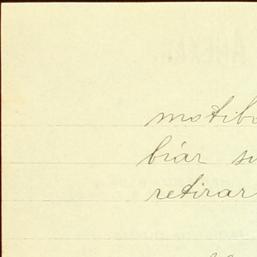 motib
biar su
retirar